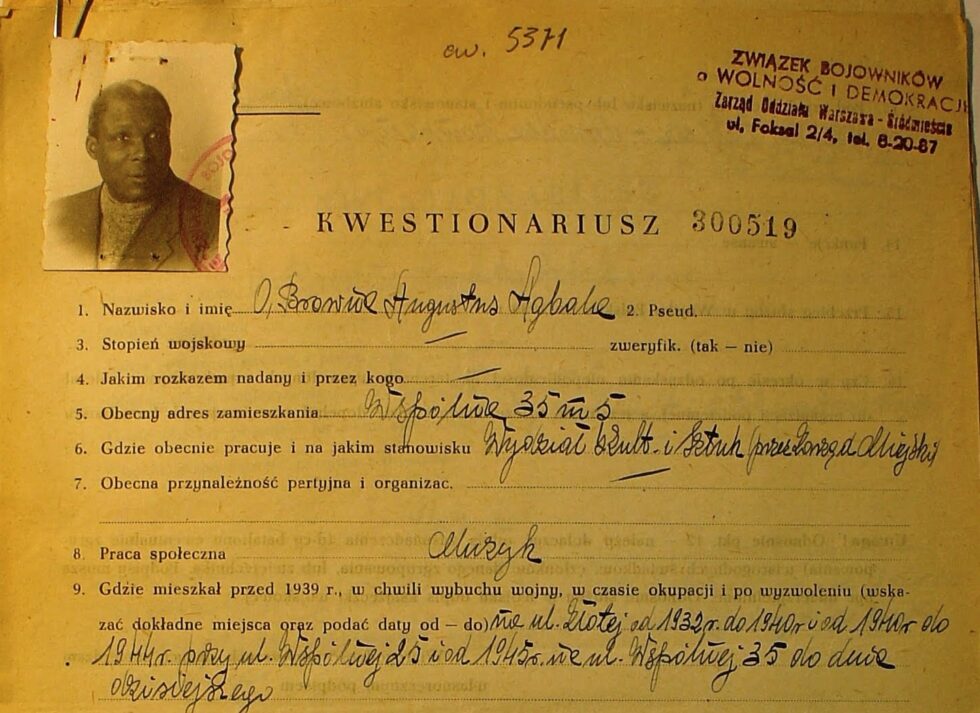 ew. 5371
ZWIĄZEK BOJOWNIKÓW
o WOLNOŚĆ i DEMOKRACJĘ
Zarząd Oddziału Warszawa - Śródmieście
ul. Foksal 2/4, tel. 8-20-87
KWESTIONARIUSZ 300519
1. Nazwisko i imię O, Browne Augustus Agbale 2. Pseud.
3. Stopień wojskowy — zweryfik. (tak — nie)
4. Jakim rozkazem nadany i przez kogo —
5. Obecny adres zamieszkania Wspólna 35 m 5
6. Gdzie obecnie pracuje i na jakim stanowisku Wydział Kult. i Sztuk (przez Zarząd Miejski)
7. Obecna przynależność partyjna i organizac. —
8. Praca społeczna Muzyk
9. Gdzie mieszkał przed 1939 r., w chwili wybuchu wojny, w czasie okupacji i po wyzwoleniu (wska-
zać dokładne miejsca oraz podać daty od — do) na ul. Złotej od 1932 r. do 1940 r i od 1940 r do
1944 r. przy ul. Wspólnej 25 i od 1945 r. na ul. Wspólnej 35 do dnia
dzisiejszego